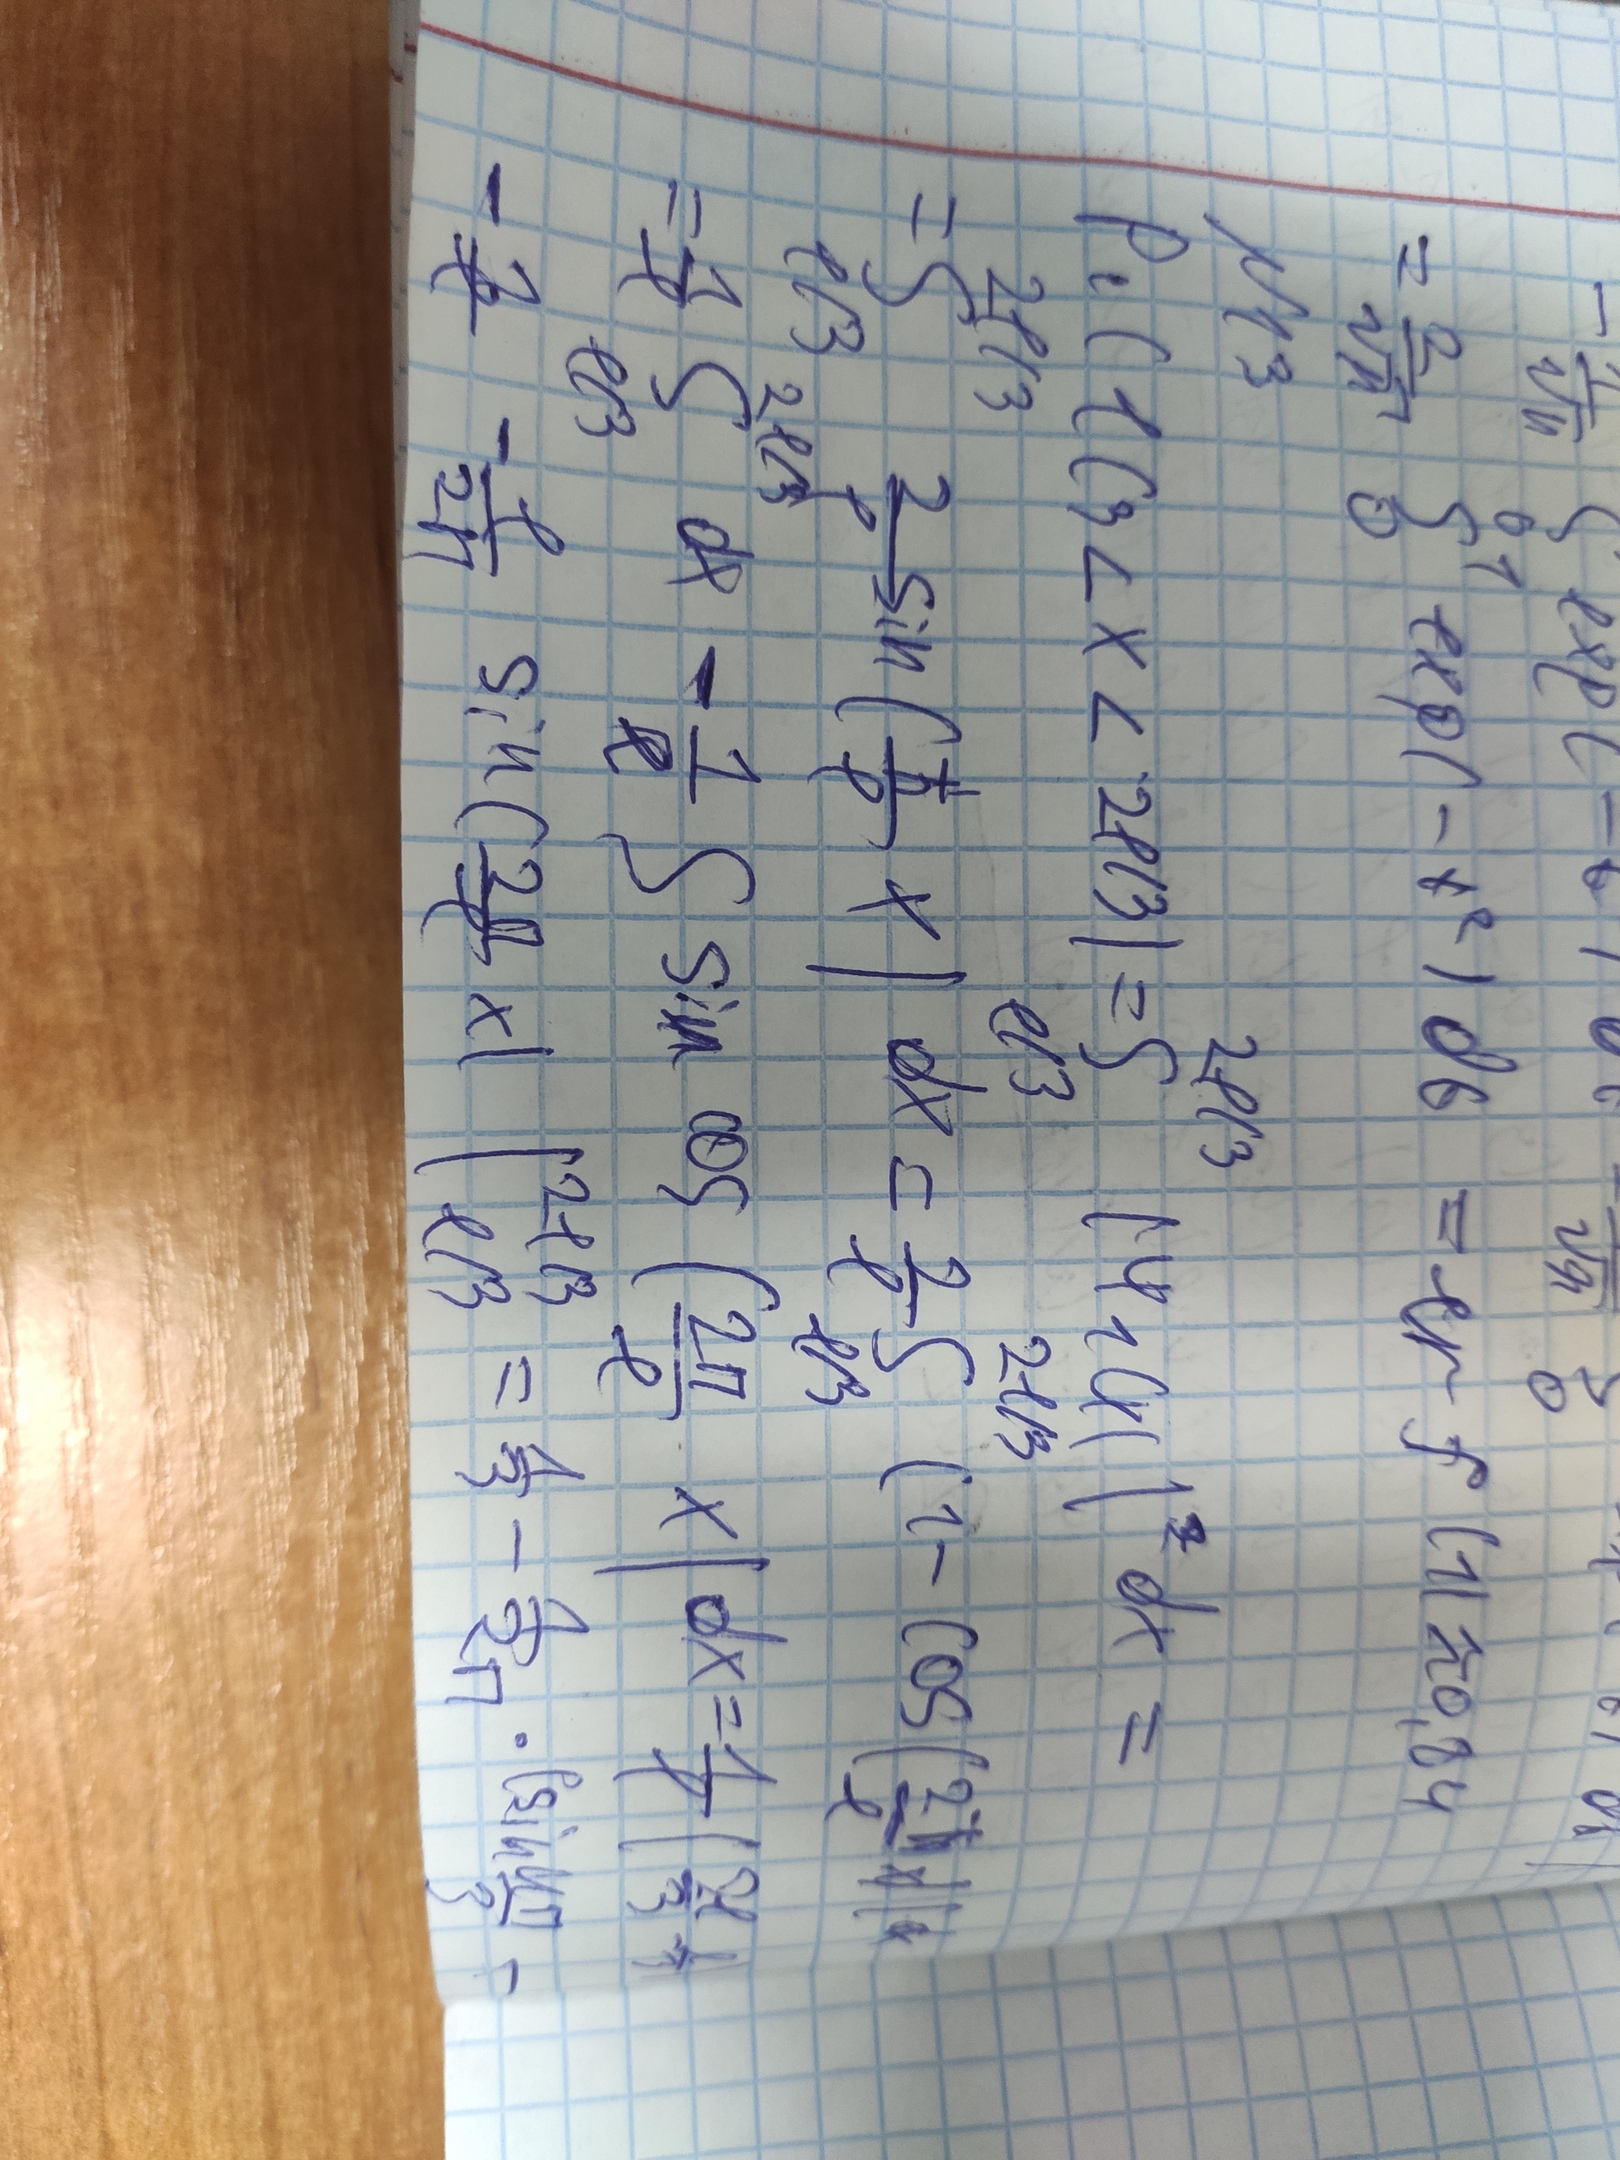 - 1/√π ∫ exp(-t
= 2/√π ∫₀¹ exp(-t²) dt = erf(1) ≈ 0,84
N13
P₁(l/3 < x < 2l/3) = ∫_{l/3}^{2l/3} |Ψ₁(x)|² dx =
= ∫_{l/3}^{2l/3} 2/l sin(π/l x) dx = 2/l ∫_{l/3}^{2l/3} (1 - cos(2π/l x)
= 1/l ∫_{l/3}^{2l/3} dx - 1/l ∫ sin cos(2π/l x) dx = 1/l (2l/3 -
- 1/l · l/2π sin(2π/l x) |_{l/3}^{2l/3} = 1/3 - 1/2π · (sin 4π/3 -